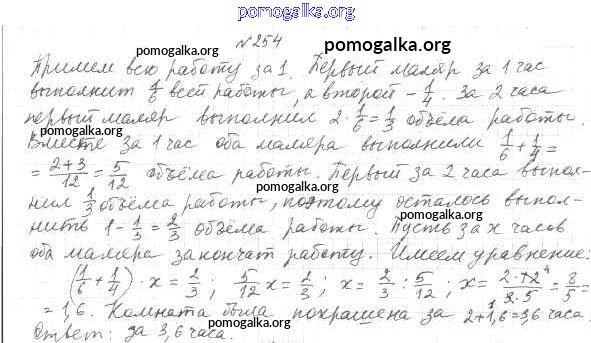 pomogalka.org
№254
pomogalka.org pomogalka.org
Примем всю работу за 1. Первый маляр за 1 час
выполнит 1/6 всей работы, а второй - 1/4. За 2 часа
первый маляр выполнил 2·1/6=1/3 объёма работы.
Вместе за 1 час оба маляра выполнили 1/6+1/4=
=2+3/12=5/12 объёма работы. Первый за 2 часа выпол-
pomogalka.org
нил 1/3 объёма работы, поэтому осталось выпол-
нить 1-1/3=2/3 объёма работы. Пусть за x часов
pomogalka.org
оба маляра закончат работу. Имеем уравнение:
(1/6+1/4)·x=2/3; 5/12x=2/3; x=2/3:5/12; x=2·12⁴/3·5=8/5=
1
=1,6. Комната была покрашена за 2+1,6=3,6 часа.
pomogalka.org pomogalka.org
Ответ: за 3,6 часа.
pomogalka.org